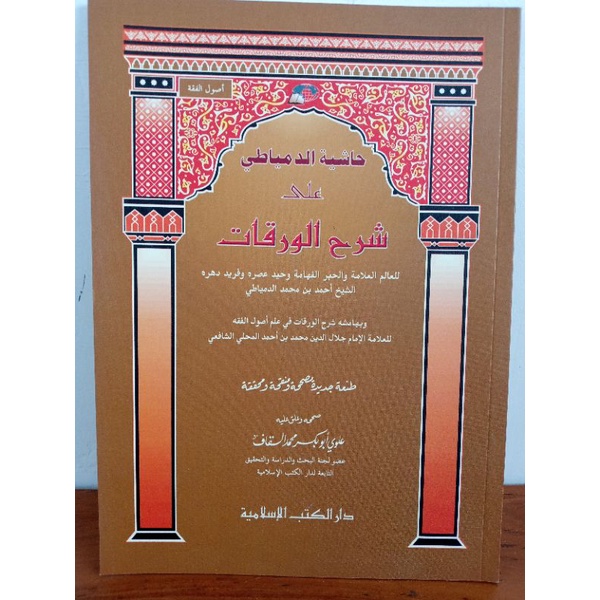 أصول الفقه
حاشية الدمياطي
على
شرح الورقات
للعالم العلامة والحبر الفهامة وحيد عصره وفريد دهره
الشيخ أحمد بن محمد الدمياطي
وبهامشه شرح الورقات في علم أصول الفقه
للعلامة الإمام جلال الدين محمد بن أحمد المحلي الشافعي
طبعة جديدة مصححة ومنقحة ومحققة
صححه وعلق عليه
علوي أبو بكر محمد السقاف
عضو لجنة البحث والدراسة والتحقيق
التابعة لدار الكتب الإسلامية
دار الكتب الإسلامية